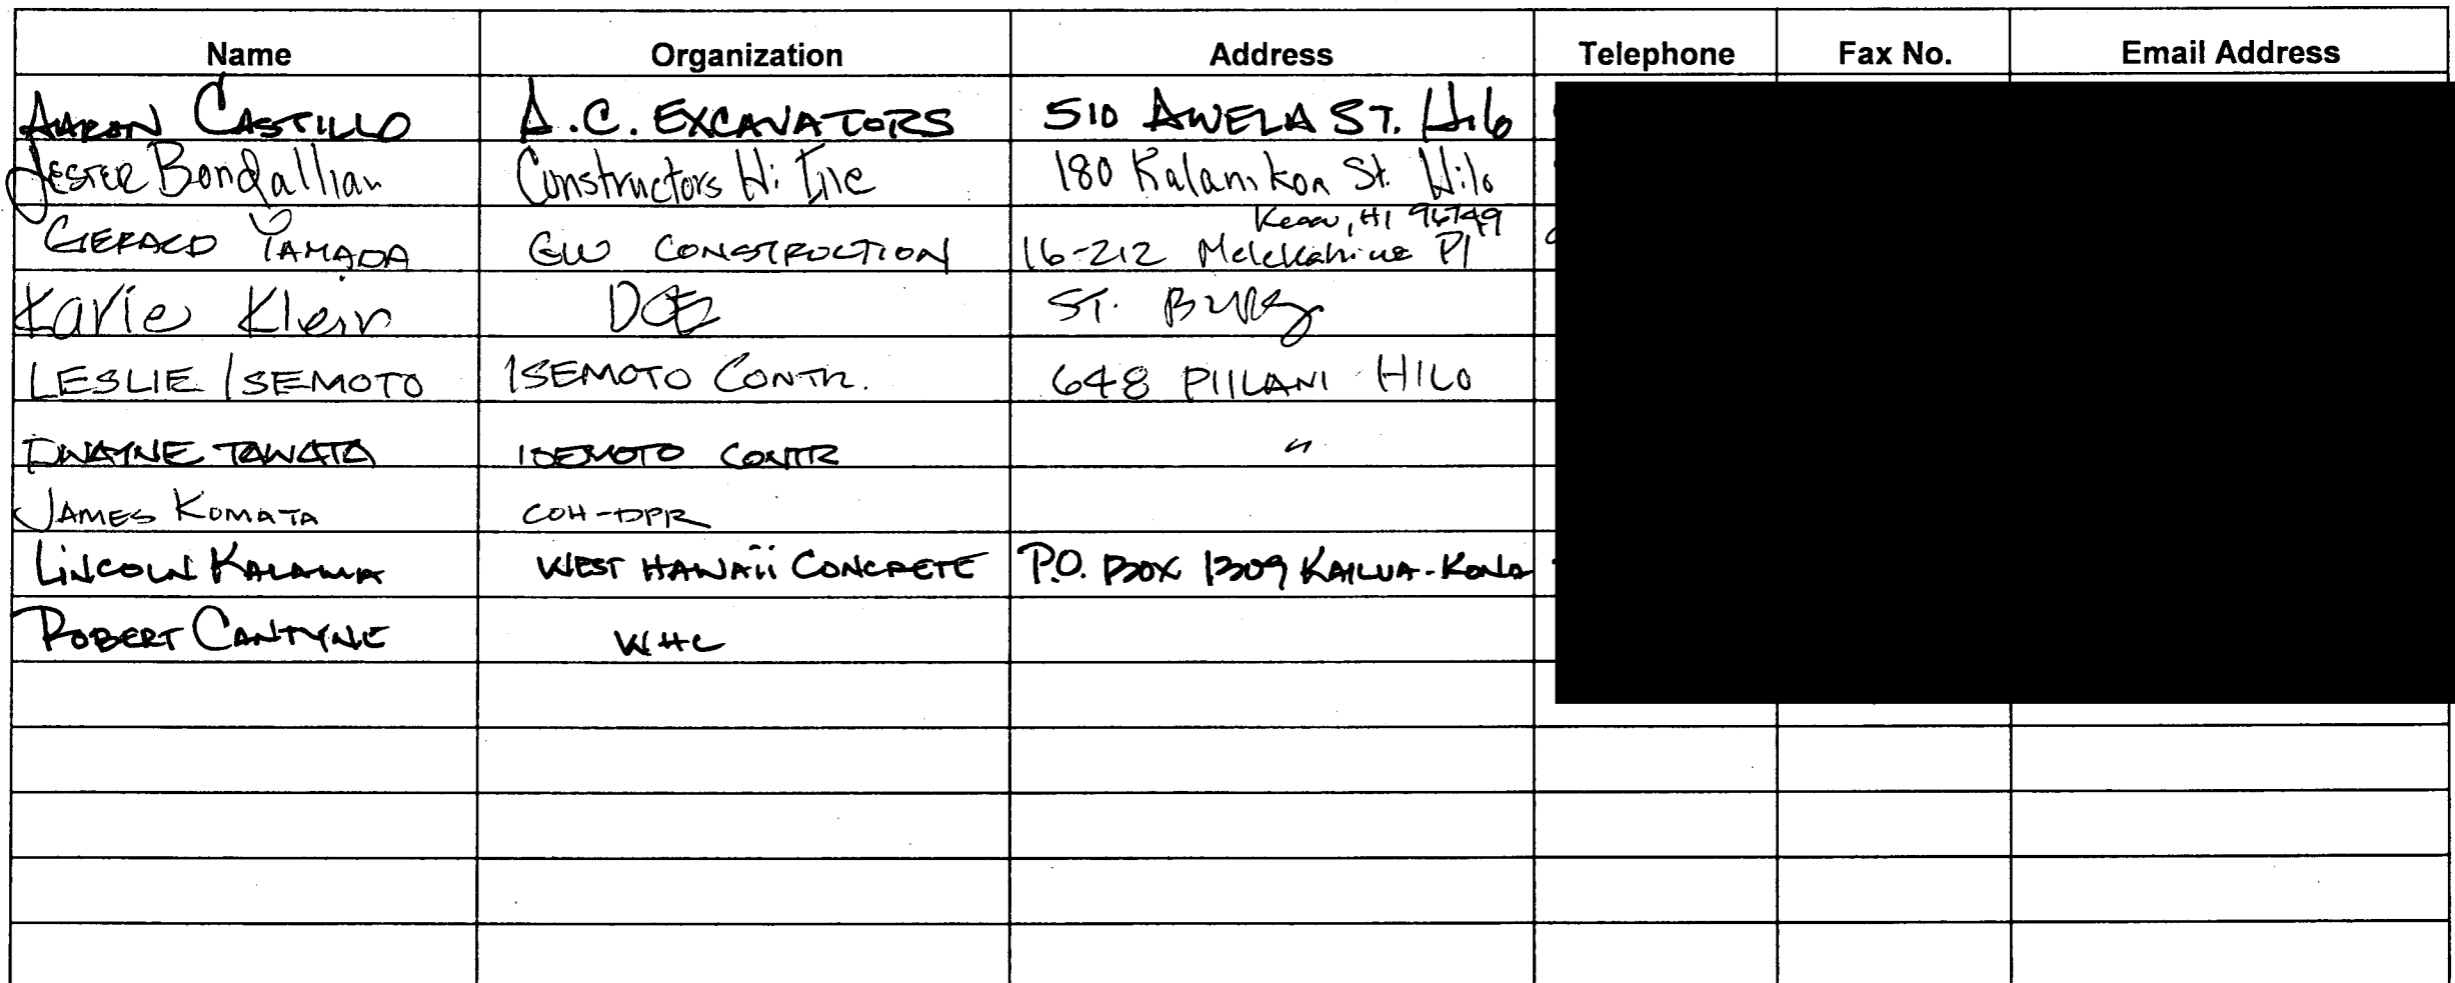 Name Organization Address Telephone Fax No. Email Address
AARON CASTILLO A.C. EXCAVATORS 510 AWELA ST. Hilo
JESTER Bondallian Constructors Hi Inc 180 Kalanikoa St. Hilo
Keaau, HI 96749
GERALD YAMADA GW CONSTRUCTION 16-212 Melekahiwa Pl
Karie Klein DOE ST. BLDG
LESLIE ISEMOTO ISEMOTO CONTR. 648 PIILANI HILO
DWAYNE TAWATA ISEMOTO CONTR "
JAMES KOMATA COH-DPR
LINCOLN KALAMA WEST HAWAII CONCRETE P.O. BOX 1309 KAILUA-KONA
ROBERT CANTYNE WHC